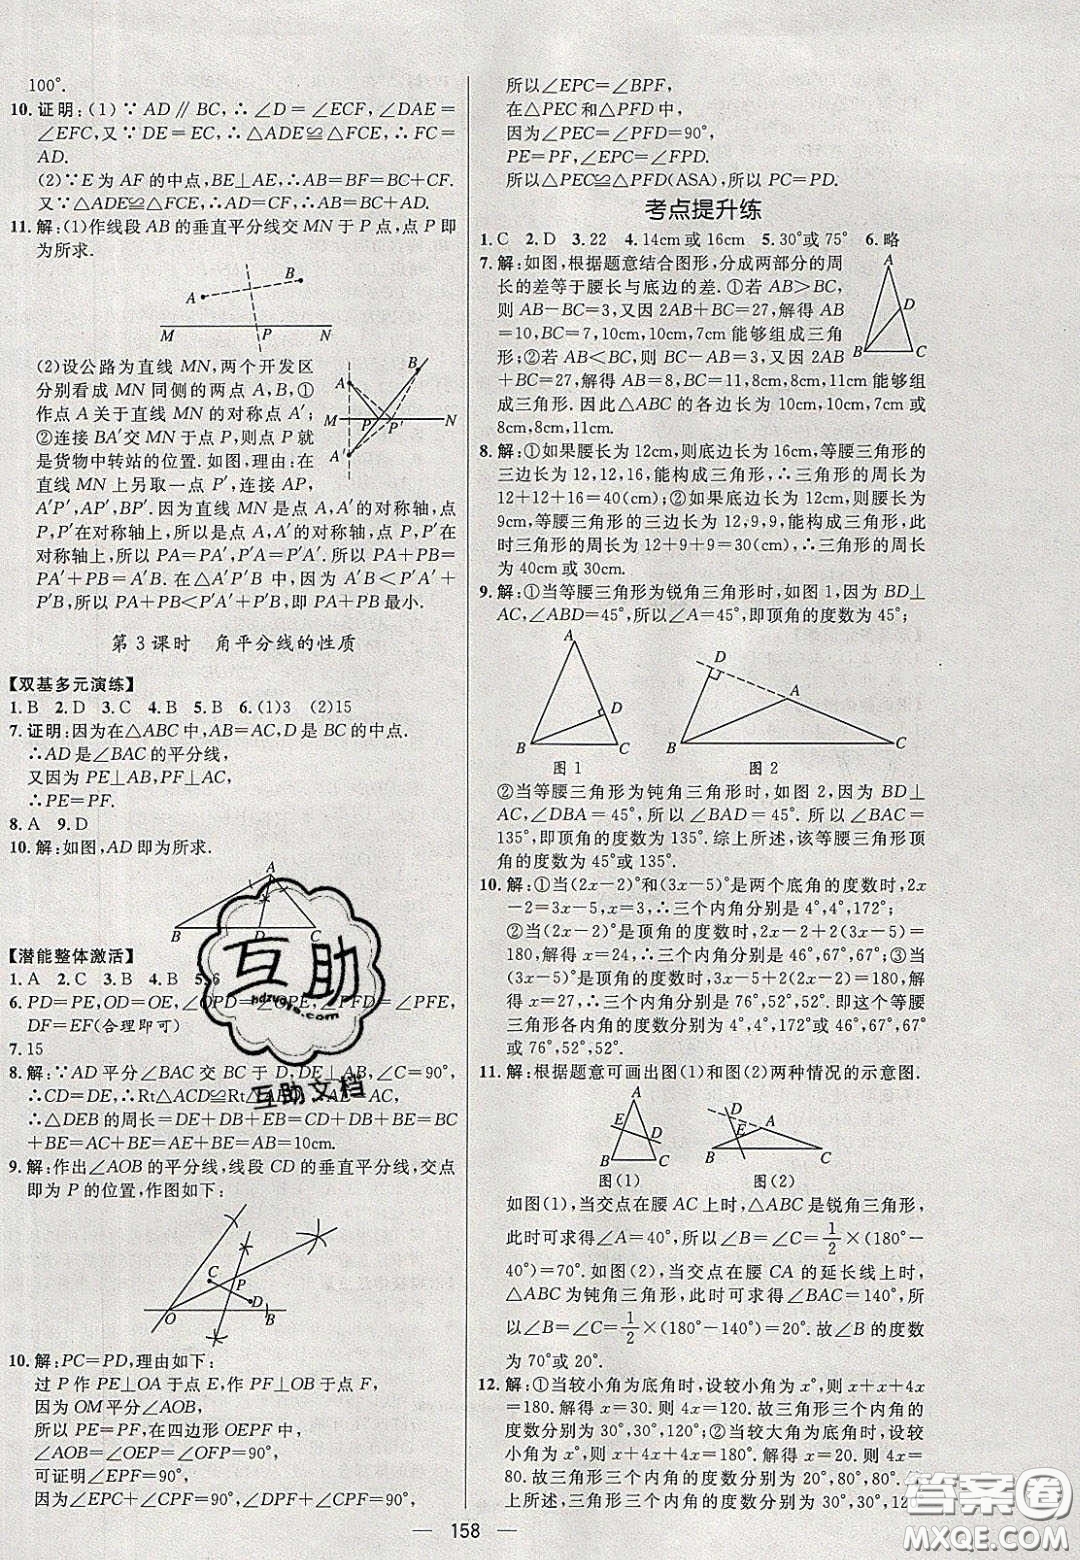 100°.
10. 证明:(1)∵AD∥BC,∴∠D=∠ECF,∠DAE
=∠EFC,又∵DE=EC,∴△ADE≌△FCE,∴FC=
AD.
(2)∵E为AF的中点,BE⊥AE,∴AB=BF=BC+CF.
又∵△ADE≌△FCE,∴AD=CF,∴AB=BC+AD.
11. 解:(1)作线段AB的垂直平分线交MN于P点,点P即
为所求.
A
B
M
P
N
(2)设公路为直线MN,两个开发区
分别看成MN同侧的两点A,B,①
作点A关于直线MN的对称点A′;
②连接BA′交MN于点P,则点P就
是货物中转站的位置.如图,理由:在
MN上另取一点P′,连接AP,
A′P′,AP′,BP′.因为直线MN是点A,A′的对称轴,点
P,P′在对称轴上,所以是点A,A′的对称轴,点P,P′在
对称轴上,所以PA=PA′,P′A=P′A′.所以PA+PB=
PA′+PB=A′B.在△A′P′B中,因为A′B<P′A′+P′
B,所以PA+PB<P′A+P′B,即PA+PB最小.
A
B
M
P
P′
N
A′
第3课时 角平分线的性质
【双基多元演练】
1. B 2. D 3. C 4. B 5. B 6. (1)3 (2)15
7. 证明:因为在△ABC中,AB=AC,D是BC的中点.
∴AD是∠BAC的平分线,
又因为PE⊥AB,PF⊥AC,
∴PE=PF.
8. A 9. D
10. 解:如图,AD即为所求.
A
B
D
C
【潜能整体激活】
1. A 2. C 3. B 4. B 5. 6
6. PD=PE,OD=OE,∠OPD=∠OPE,∠PFD=∠PFE,
DF=EF(合理即可)
7. 15
8. 解:∵AD平分∠BAC交BC于D,DE⊥AB,∠C=90°,
∴CD=DE,∴Rt△ACD≌Rt△AED,∴AE=AC,
∴△DEB的周长=DE+DB+EB=CD+DB+BE=BC
+BE=AC+BE=AE+BE=AB=10cm.
9. 解:作出∠AOB的平分线,线段CD的垂直平分线,交点
即为P的位置,作图如下:
C
P
D
O
B
10. 解:PC=PD,理由如下:
过P作PE⊥OA于点E,作PF⊥OB于点F,
因为OM平分∠AOB,
所以PE=PF,在四边形OEPF中,
∠AOB=∠OEP=∠OFP=90°,
可证明∠EPF=90°,
因为∠EPC+∠CPF=90°,∠DPF+∠CPF=90°,
所以∠EPC=∠BPF,
在△PEC和△PFD中,
因为∠PEC=∠PFD=90°,
PE=PF,∠EPC=∠FPD.
所以△PEC≌△PFD(ASA),所以PC=PD.
考点提升练
1. C 2. D 3. 22 4. 14cm或16cm 5. 30°或75° 6. 略
7. 解:如图,根据题意结合图形,分成两部分的周
长的差等于腰长与底边的差.①若AB>BC,
则AB-BC=3,又因2AB+BC=27,解得AB
=10,BC=7,10cm,10cm,7cm能够组成三角
形;②若AB<BC,则BC-AB=3,又因2AB
+BC=27,解得AB=8,BC=11,8cm,8cm,11cm能够组
成三角形.因此△ABC的各边长为10cm,10cm,7cm或
8cm,8cm,11cm.
A
D
B
C
8. 解:①如果腰长为12cm,则底边长为16cm,等腰三角形的
三边长为12,12,16,能构成三角形,∴三角形的周长为
12+12+16=40(cm);②如果底边长为12cm,则腰长为
9cm,等腰三角形的三边长为12,9,9,能构成三角形,此
时三角形的周长为12+9+9=30(cm),∴三角形的周长
为40cm或30cm.
9. 解:①当等腰三角形为锐角三角形时,如图1,因为BD⊥
AC,∠ABD=45°,所以∠A=45°,即顶角的度数为45°;
A
D
B
C
图1
D
A
B
C
图2
②当等腰三角形为钝角三角形时,如图2,因为BD⊥
AC,∠DBA=45°,所以∠BAD=45°,所以∠BAC=
135°,即顶角的度数为135°.综上所述,该等腰三角形顶
角的度数为45°或135°.
10. 解:①当(2x-2)°和(3x-5)°是两个底角的度数时,2x
-2=3x-5,解得x=3,∴三个内角分别是4°,4°,172°;
②当(2x-2)°是顶角的度数时,2x-2+2(3x-5)=180,
解得x=24,∴三个内角分别是46°,67°,67°;③当(3x
-5)°是顶角的度数时,3x-5+2(2x-2)=180,解
得x=27,∴三个内角分别是76°,52°,52°.即这个等腰
三角形各内角的度数分别为4°,4°,172°或46°,67°,67°
或76°,52°,52°.
11. 解:根据题意可画出图(1)和图(2)两种情况的示意图.
A
E
D
B
C
图(1)
D
E
A
B
C
图(2)
如图(1),当交点在腰AC上时,△ABC是锐角三角形,
此时可求得∠A=40°,所以∠B=∠C=1/2×(180°-
40°)=70°.如图(2),当交点在腰CA的延长线上时,
△ABC为钝角三角形,此时可求得∠BAC=140°,所
以∠B=∠C=1/2×(180°-140°)=20°.故∠B的度数
为70°或20°.
12. 解:①当较小角为底角时,设较小角为x°,则x+x+4x=
180.解得x=30.4x=120.故三角形三个内角的度数
分别为30°,30°,120°;②当较大角为底角时,设较
小角为x°,则x+4x+4x=180°.解得x=20.4x=
80.故三角形三个内角的度数分别为20°,80°,80°.综
上所述,三角形三个内角的度数分别为30°,30°,120°
158
互助
hdzuoye.com
互助文档
答案圈
MXQE.COM